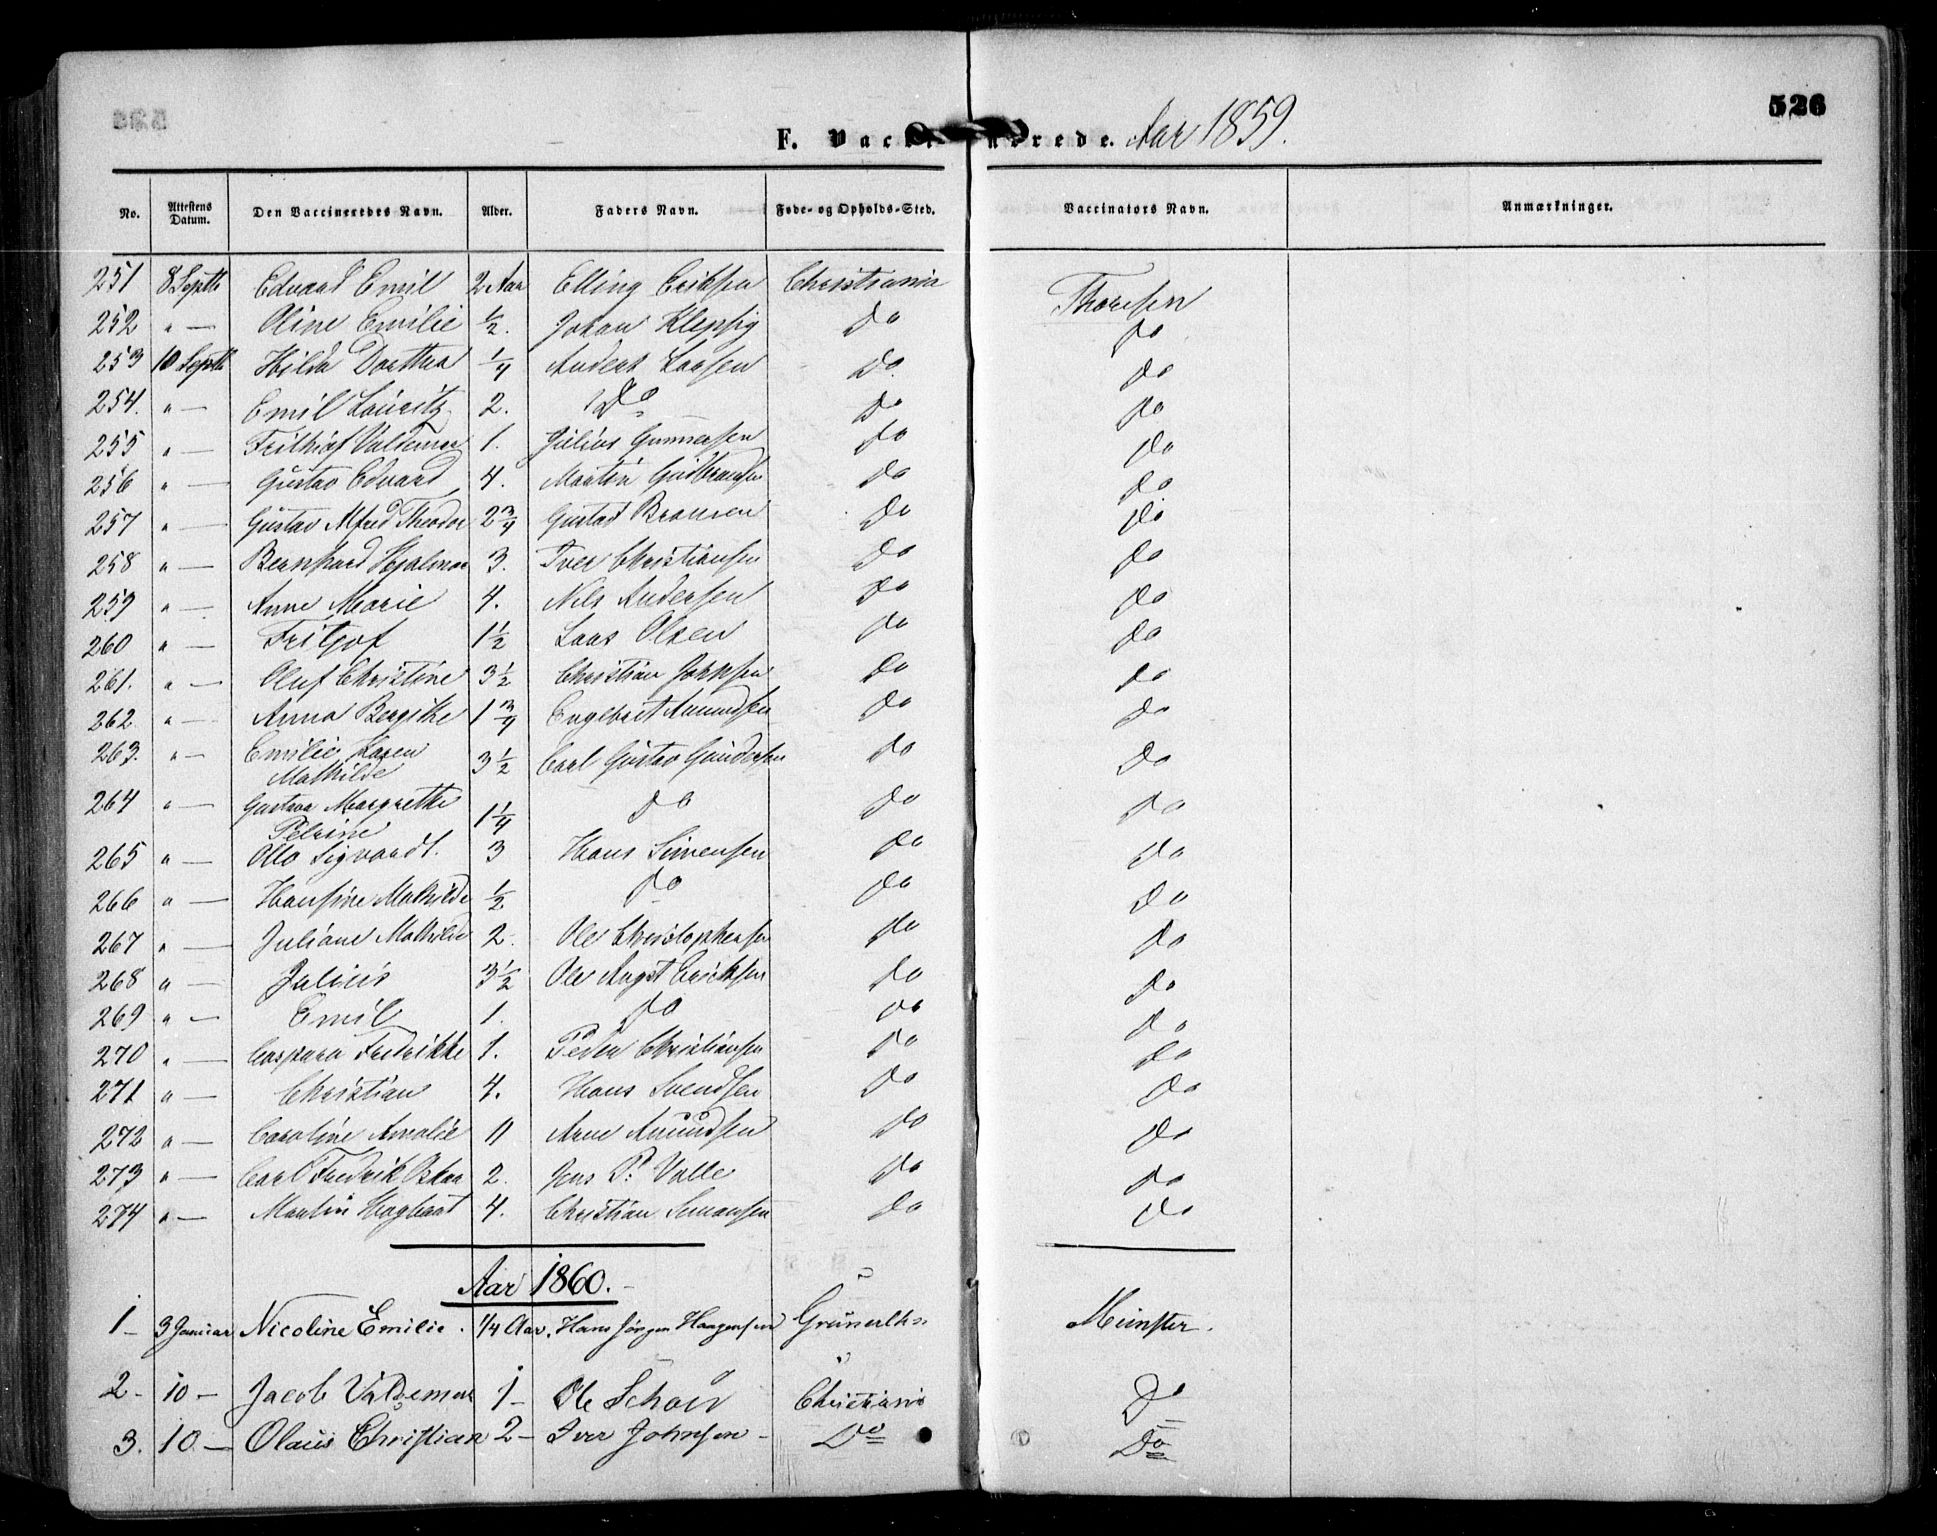 526
F. Vacc nerede. Aar 1859.
No. Attestens Datum. Den Vaccineredes Navn. Alder. Faders Navn. Føde- og Opholds-Sted. Vaccinators Navn. Anmærkninger.
251 8 Septb Edvard Emil 2 Aar Elling Eriksen Christiania Thoresen
252 " — Oline Emilie ½. Johan Klepsig Do Do
253 10 Septb Hilda Dorthea ¼ Anders Larsen Do. Do
254. " — Emil Lauritz 2. Do Do Do
255 " — Frithiof Valdemar 1. Julius Gunnersen Do Do
256 " — Gustav Edvard 4. Martin Gudbrandsen Do Do
257 " — Gustav Alfred Theodor 2¾ Gustad Bronsen Do Do
258 " — Bernhard Hjalmar 3. Iver Christiansen Do Do
259 " — Anne Marie 4. Nils Andersen Do Do
260 " — Fritjof 1½ Lars Olsen Do Do
261. " — Oluf Christine 3½ Christian Johnsen Do Do
262 " — Anna Bergithe 1¾ Engebret Amundsen Do Do
263. " — Emilie Karen Mathilde 3½ Carl Gustav Gundersen Do Do
264 " — Gustava Margrethe Petrine 1¼ Do Do Do
265 " — Otto Sigvardt. 3 Hans Simensen Do Do
266 " — Hansine Mathilde ½ Do Do Do
267 " — Juliane Mathilde 2. Ole Christophersen Do Do
268 " — Julius 3½ Ole Augst Ericksen Do Do
269 " — Emil 1. Do Do Do
270 " — Caspara Fredrikke 1. Peder Christiansen Do Do
271 " — Christian 4. Hans Svendsen Do Do
272 " — Caroline Amalie 11 Arne Amundsen Do Do
273 " — Carl Fredrik Oskar 2. Jens P. Valle Do Do
274 " — Martin Hagbart 4. Christian Simonsen Do Do
Aar 1860.
1 – 3 Januar Nicoline Emilie. 1/4 Aar. Hans Jörgen Haagensen Grünerlkn Münster.
2 – 10 – Jacob Valdemar 1 – Ole Schou Christiania Do
3. 10 – Olaus Christian 2 – Iver Johnsen – Do Do